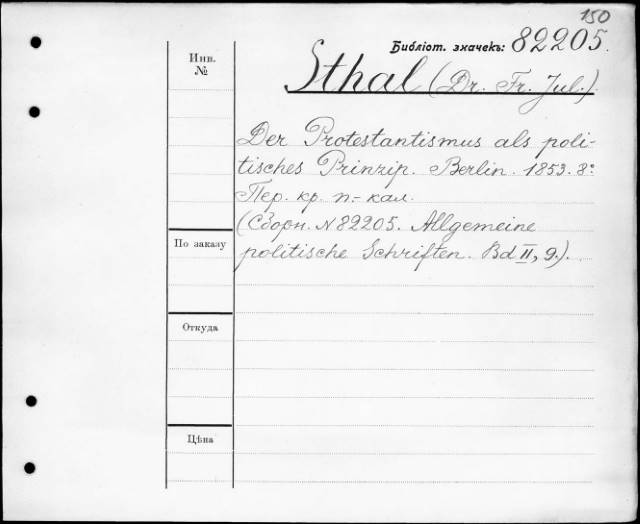 150
Библіот. значекъ: 82205.
Инв.
№
Sthal (Dr. Fr. Jul.).
Der Protestantismus als poli-
tisches Prinzip. Berlin. 1853. 8º
Пер. кр. п.- кал.
(Сборн. N 82205. Allgemeine
По заказу
politische Schriften. Bd II, 9.).
Откуда
Цѣна